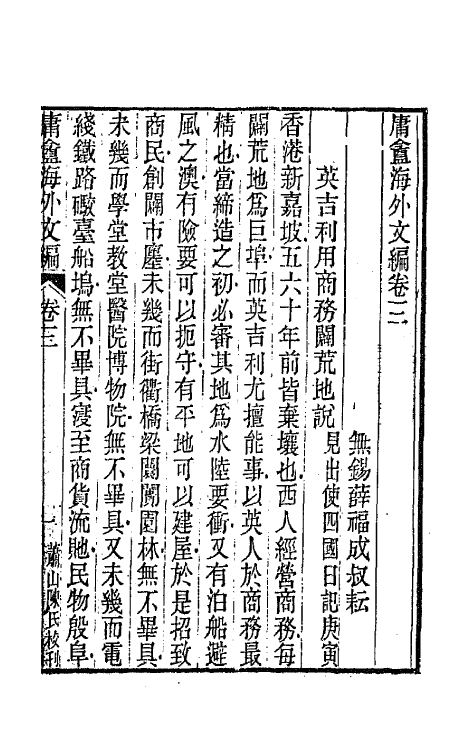 庸盦海外文編卷三
無錫薛福成叔耘
英吉利用商務闢荒地說 見出使四國日記庚寅
香港新嘉坡五六十年前皆棄壤也西人經營商務每
闢荒地爲巨埠而英吉利尤擅能事以英人於商務最
精也當締造之初必審其地爲水陸要衝又有泊船避
風之澳有險要可以扼守有平地可以建屋於是招致
商民創闢市廛未幾而街衢橋梁闤闠園林無不畢具
未幾而學堂教堂醫院博物院無不畢具又未幾而電
綫鐵路礮臺船塢無不畢具寖至商貨流貤民物殷阜
庸盦海外文編 卷三 一 蕭山陳氏校刊